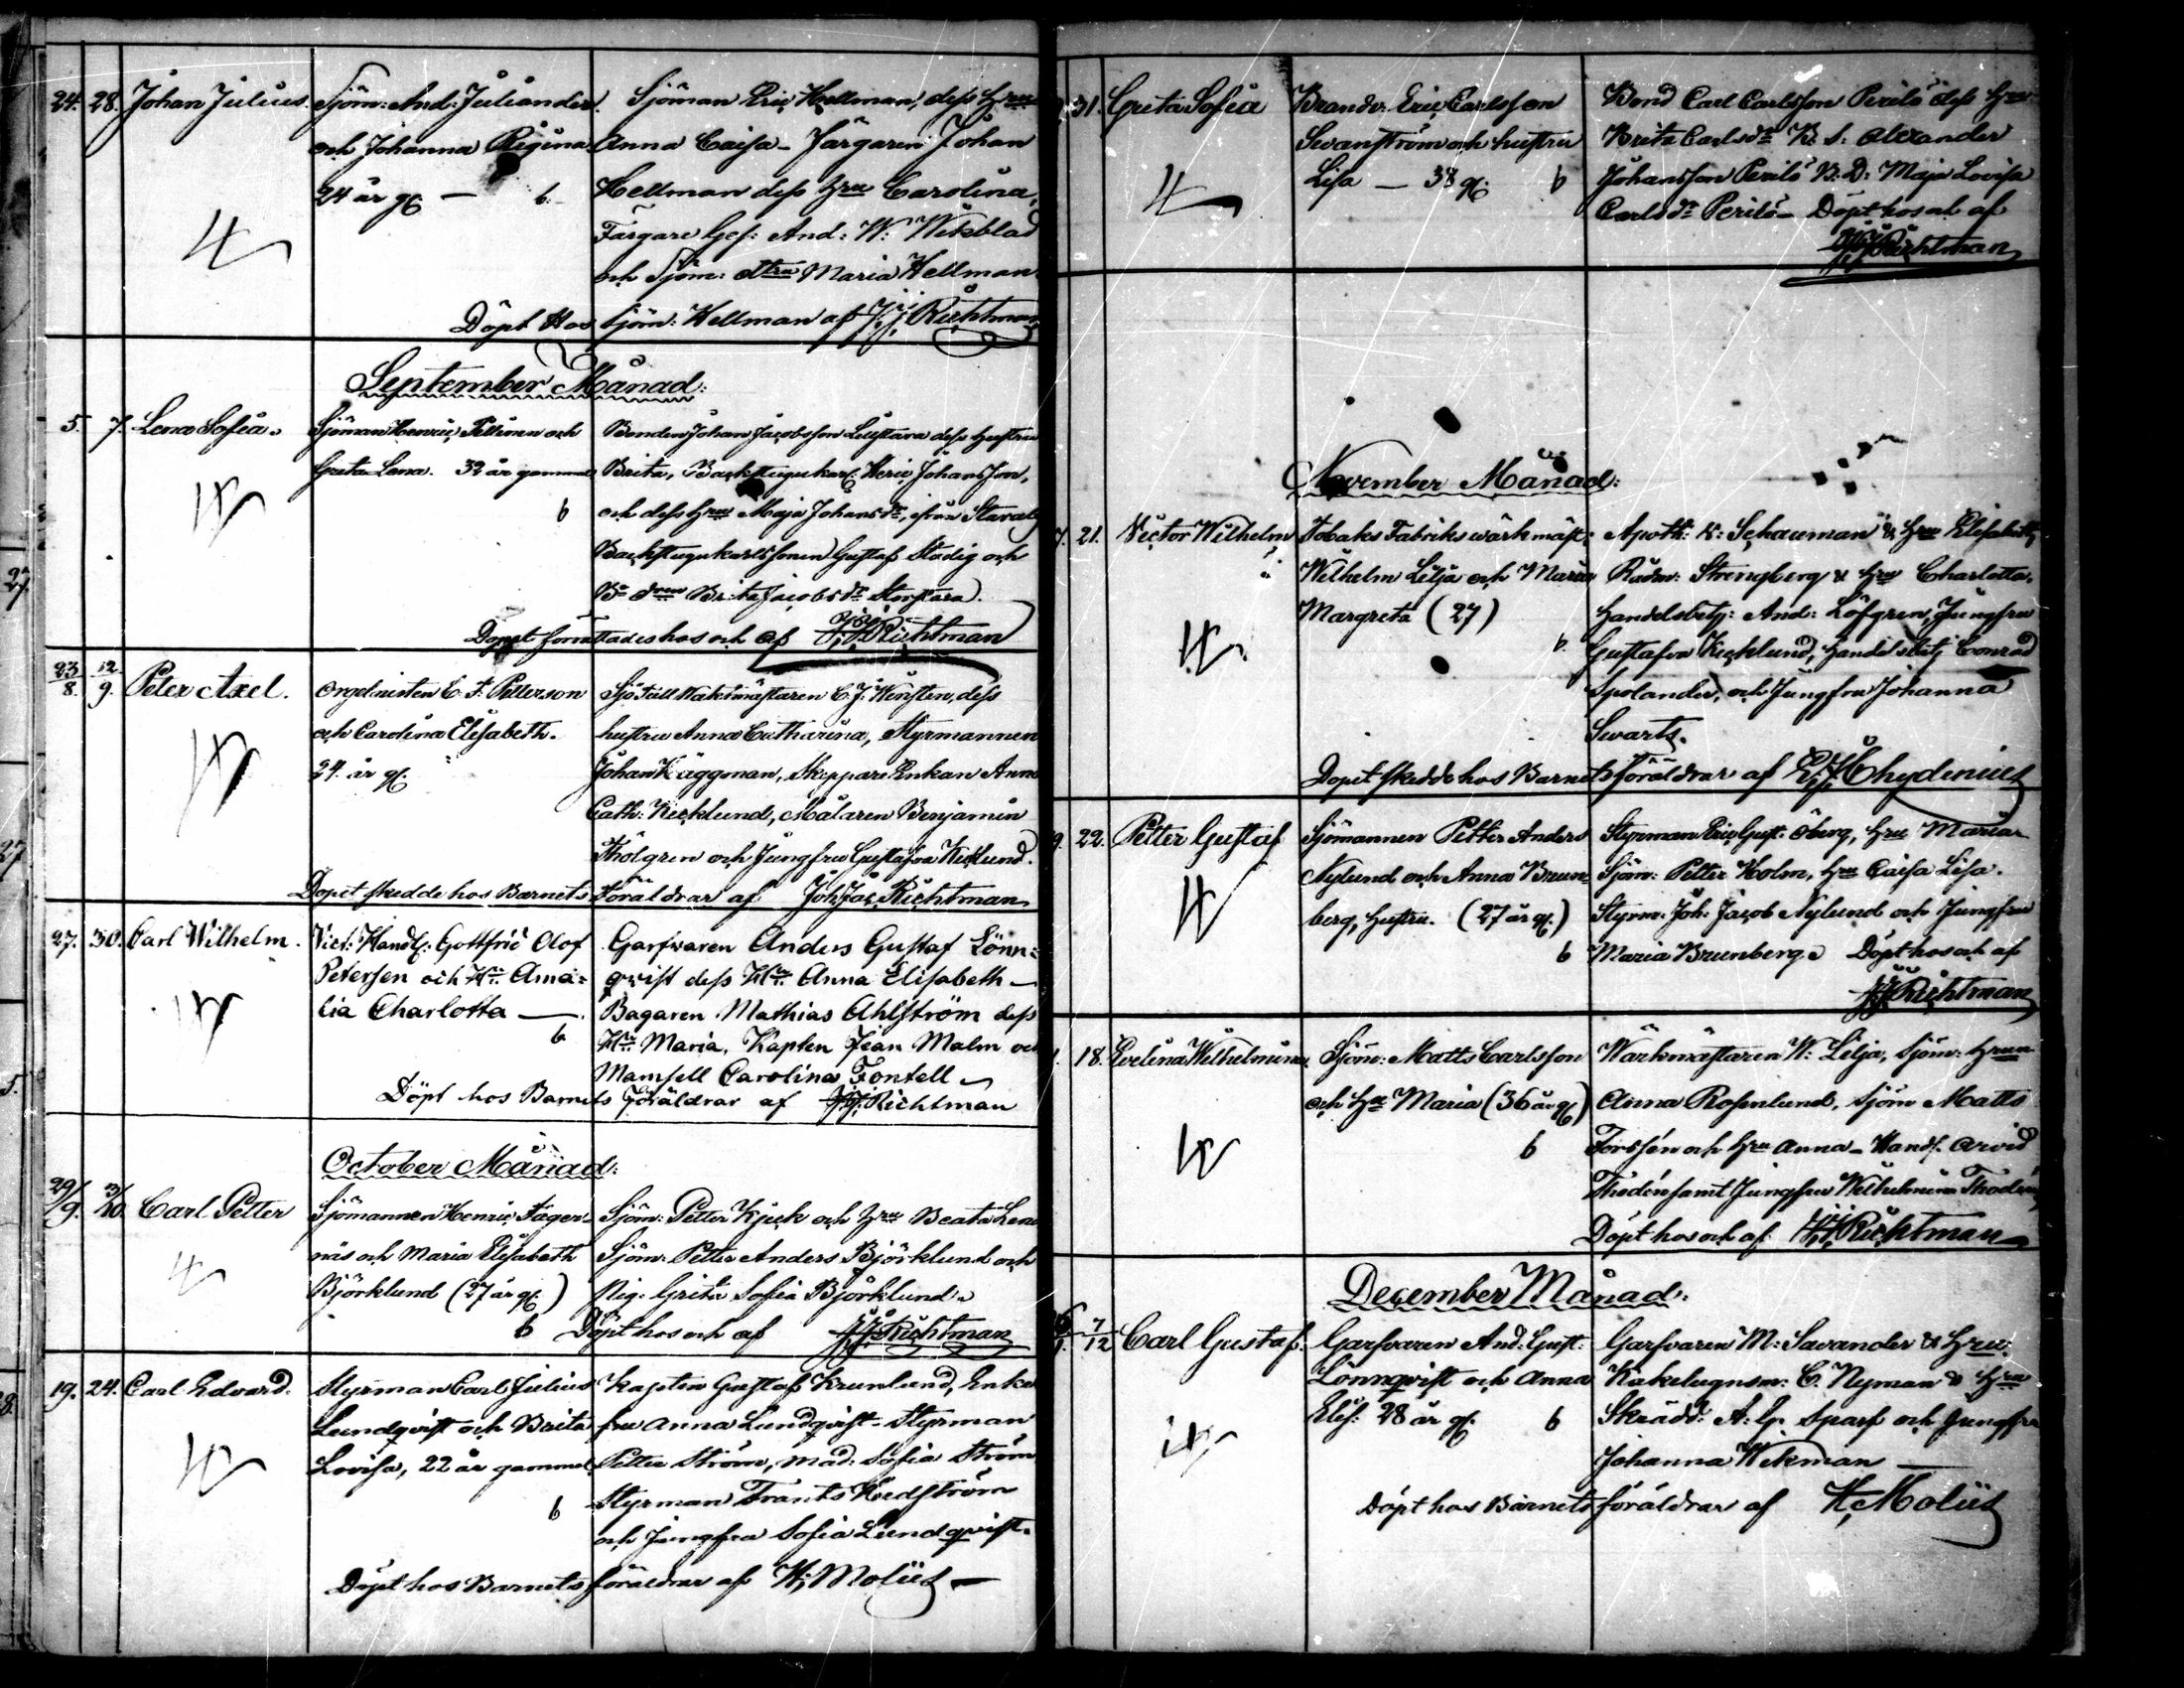 24. 28. Johan Julius. Sjöm: And: Juliander. Sjöman Eric Hellman, dess Hru
och Johanna Regina Anna Caisa - Färgaren Johan
24 år gl. — b. Hellman dess Hru Carolina,
Färgare Ges: And: W: Wikblad
och Sjöm: Maria Hellman
Döpt hos Sjöm: Hellman af J. J. Richtman
September Månad:
5. 7. Lena Sofia. Sjöman Henric Pellinen och Bonden Johan Jacobsson dess Hustru
Greta Lena. 32 år gammal Brita, Backstugukarl: Johansson,
b och dess Hru Maja Johansdr, ifrån
Backstugukarlssonen Gustaf Stadig och
Brita Jacobsdr Storgära.
Dopet förrättades hos och af J. J. Richtman
23/8. 12/9. Peter Axel. Organisten C. F. Petterson Sjötull Waktmästaren C. J. dess
och Carolina Elisabeth. hustru Anna Catharina, Styrmannen
24. år gl. Johan Häggman, Skeppare Enkan Anna
Cath: Kecklund, Målaren Benjamin
Thölgren och Jungfru Gustafva Kecklund.
Dopet skedde hos Barnets Föräldrar af Joh Jac Richtman
27. 30. Carl Wilhelm. Vict: Handl: Gottfrid Olof Garfvaren Anders Gustaf Lönn=
Petersen och Hru Ama= qvist dess Hru Anna Elisabeth —
lia Charlotta —. Bagaren Mathias Ahlström dess
b Hru Maria, Kapten Jean Malm och
Mamsell Carolina Fontell
Döpt hos Barnets Föräldrar af J. J. Richtman
October Månad:
29/9. 3/10. Carl Petter Sjömannen Henric Fager- Sjöm: Petter Kjick och Hru Beata Lena
näs och Maria Elisabeth Sjöm: Petter Anders Björklund och
Björklund (27 år gl:) Pig: Greta Sofia Björklund.
b Döpt hos och af J. J. Richtman
19. 24. Carl Edvard. Styrman Carl Julius Kapten Gustaf Krunlund, Enke
Lundqvist och Brita fru Anna Lundqvist - Styrman
Lovisa, 22 år gammal. Petter Ström, Mad: Sofia Ström
b Styrman Frants Nordström
och Jungfru Sofia Lundqvist.
Döpt hos Barnets föräldrar af K. Molüs —
31. Greta Sofia Brandv: Eric Carlsson Bond Carl Carlsson Perilö dess Hru
Swanström och hustru Brita Carlsdr B: S: Alexander
Lisa — 38 gl: b Johansson Perilö B: D: Maja Lovisa
Carlsdr Perilö - Döpt hos och af
J. J. Richtman
November Månad:
7. 21. Victor Wilhelm Tobaks Fabriks wärkmäst: Apoth: K: Schauman & Hru Elisabeth,
Wilhelm Lilja och Maria Rådm: Strengberg & Hru Charlotta.
Margreta (27) Handelsbetj: And: Löfgren, Jungfru
b. Gustafva Kecklund, Handelsbetj Conrad
Spolander, och Jungfru Johanna
Swarts.
Dopet skedde hos Barnets föräldrar af Chydenius
9. 22. Petter Gustaf Sjömannen Petter Anders Styrman Eric Gust: Öberg, Hru Maria
Nylund och Anna Brun- Sjöm: Petter Holm, Hru Caisa Lisa.
berg, Hustru. (27 år gl:) Styrm: Joh: Jacob Nylund och Jungfru
b Maria Brunberg. Döpt hos och af
J. J. Richtman
18. Evelina Wilhelmina Sjöm: Matts Carlsson Wärkmästaren W: Lilja, Sjöm: Hrun
och Hru Maria (36 år gl) Anna Rosenlund, Sjöm Matts
b Forssén och Hru Anna - Handl: Arvid
Thodén samt Jungfru Wilhelmina Thodén,
Döpt hos och af. J. J. Richtman
December Månad:
7/12 Carl Gustaf. Garfvaren And: Gust: Garfvaren M: Savander & Hru:
Lönnqvist och Anna Kakelugnsm: C. Nyman & Hru
Elis: 28 år gl. b Skrädd: A: G. Sparf och Jungfru
Johanna Wikman —
Döpt hos Barnets föräldrar af K. Molüs